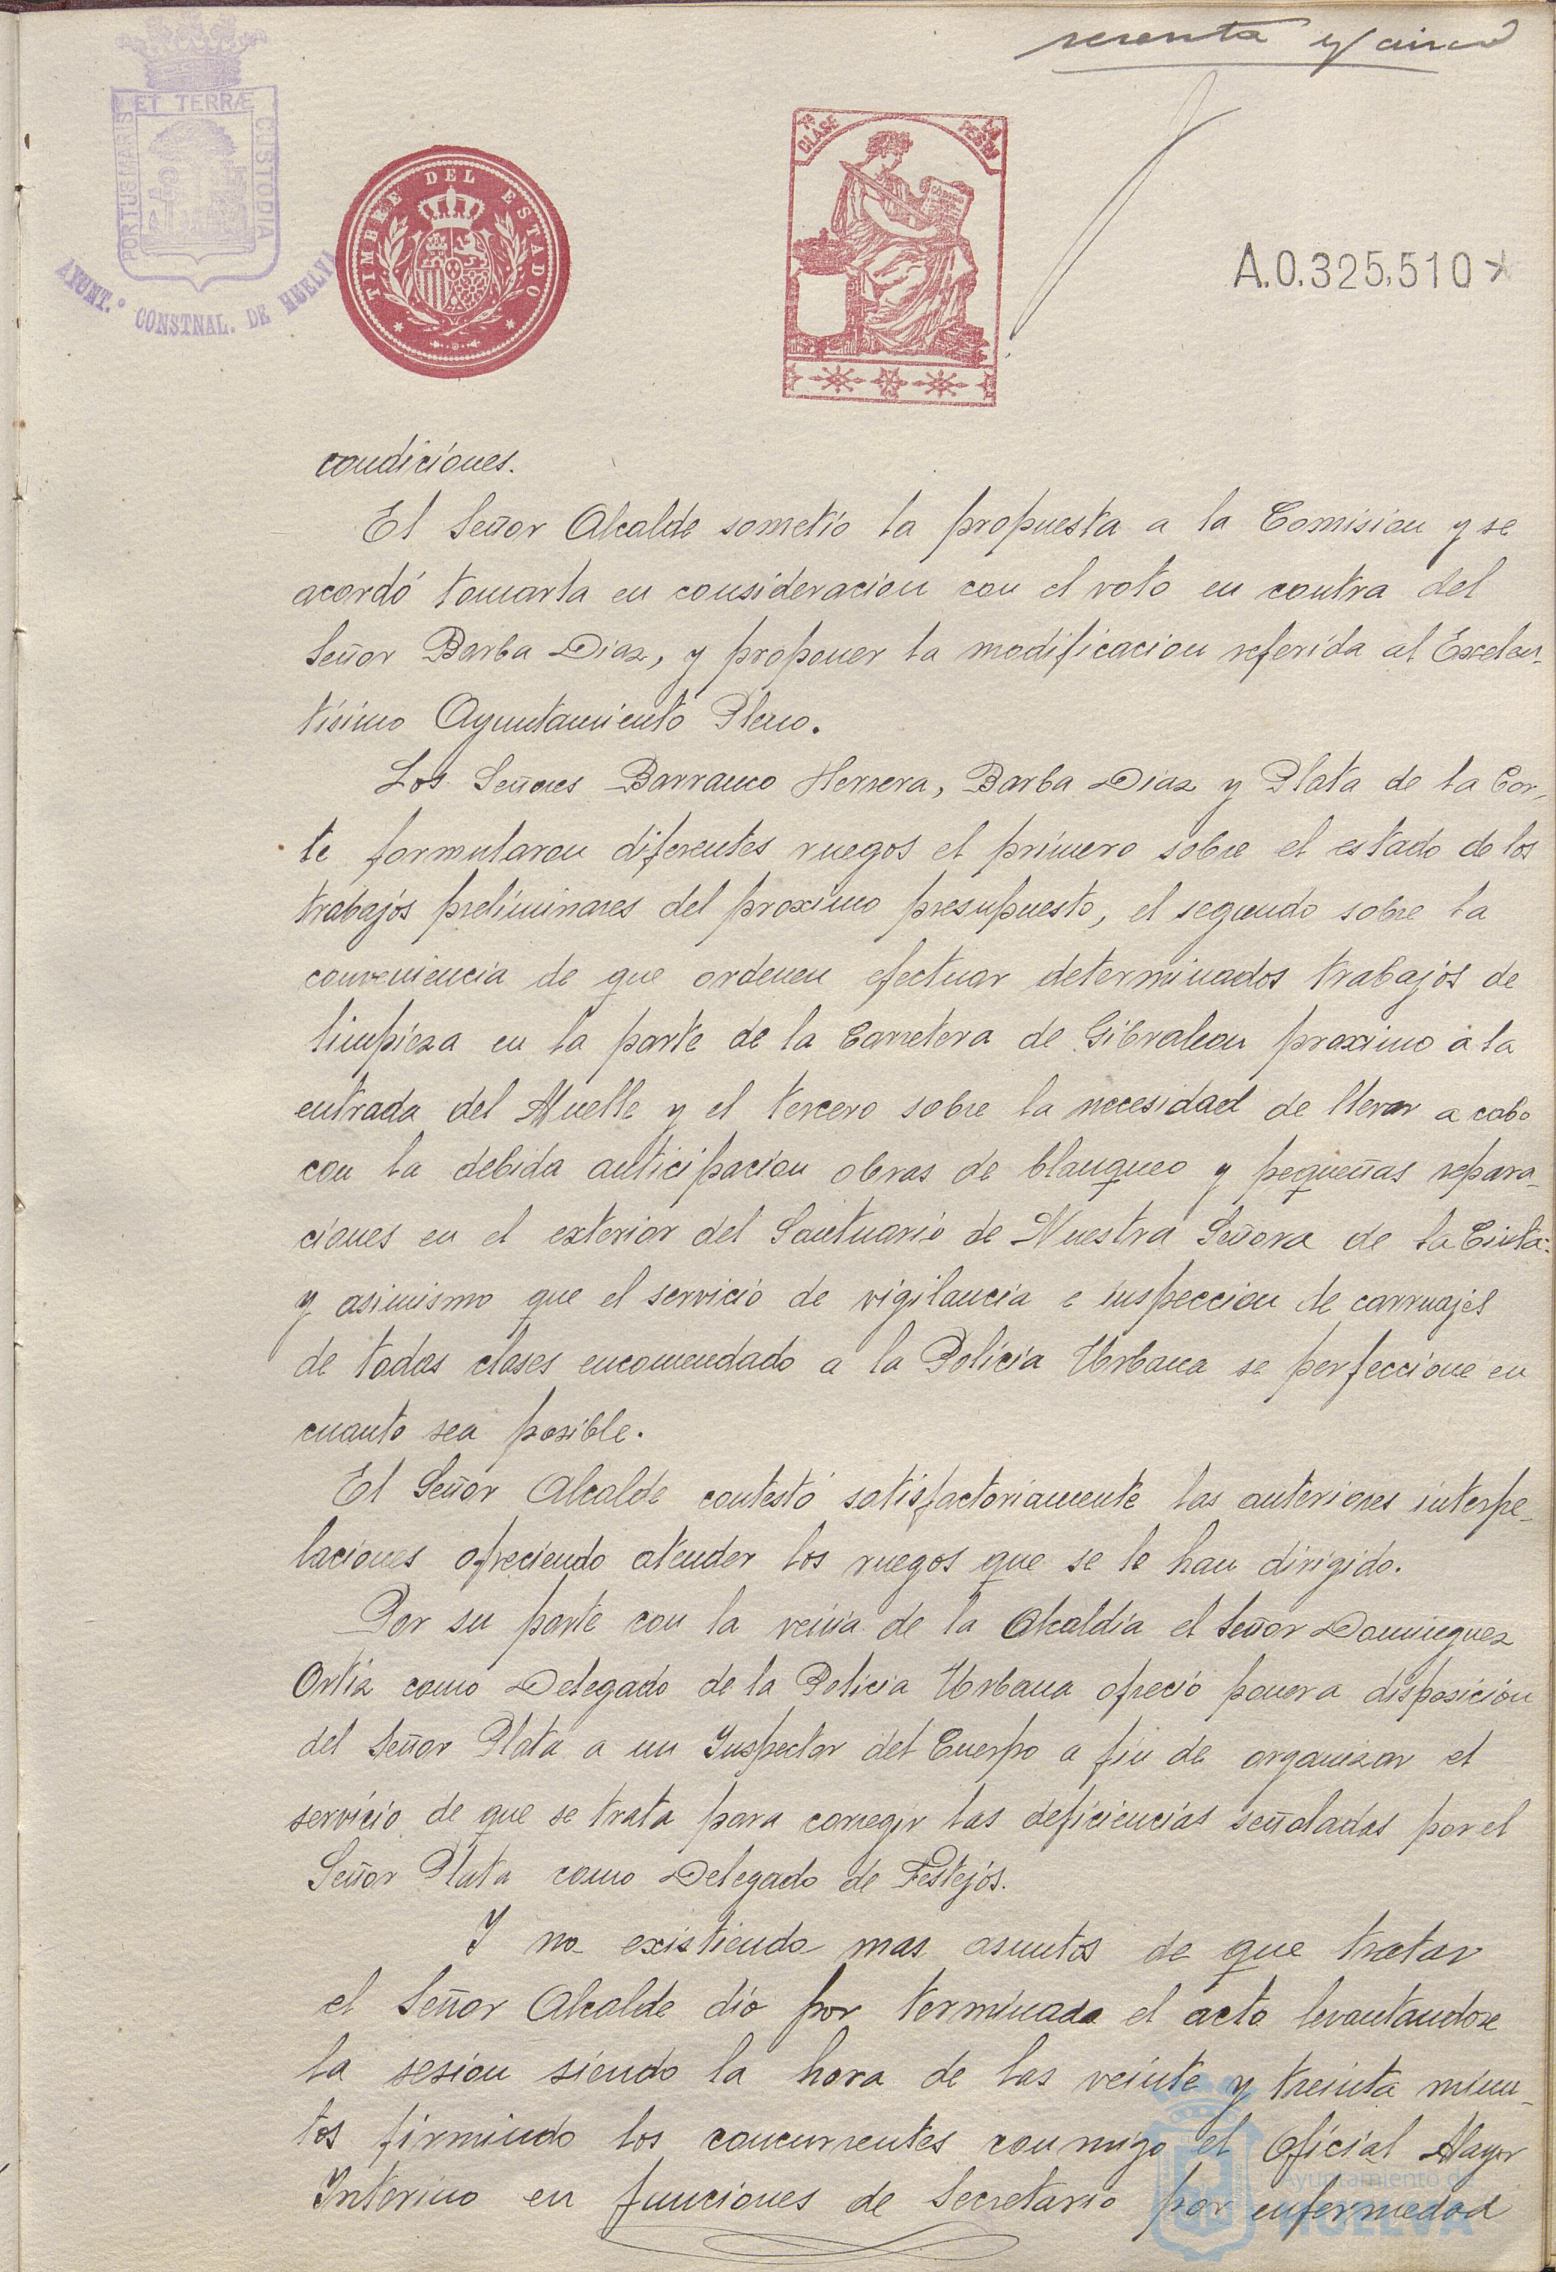 sesenta y cinco
ET TERRÆ
PORTUS MARIS
CUSTODIA
AYUNT.º CONSTNAL. DE HUELVA
TIMBRE DEL ESTADO
7ª CLASE
A.0.325,510
condiciones.
El Señor Alcalde sometio la propuesta a la Comision y se
acordó tomarla en consideracion con el voto en contra del
Señor Barba Diaz, y proponer la modificacion referida al Excelen-
tisimo Ayuntamiento Pleno.
Los Señores Barranco Herrera, Barba Diaz y Plata de la Cor-
te formularon diferentes ruegos el primero sobre el estado de los
trabajos preliminares del proximo presupuesto, el segundo sobre la
conveniencia de que ordenen efectuar determinados trabajos de
limpieza en la parte de la Carretera de Gibraleon proximo a la
entrada del Muelle y el tercero sobre la necesidad de llevar a cabo
con la debida anticipacion obras de blanqueo y pequeñas repara-
ciones en el exterior del Santuario de Nuestra Señora de la Cinta:
y asimismo que el servicio de vigilancia e inspeccion de carruajes
de todas clases encomendado a la Policia Urbana se perfeccione en
cuanto sea posible.
El Señor Alcalde contestó satisfactoriamente las anteriores interpe-
laciones ofreciendo atender los ruegos que se le han dirigido.
Por su parte con la venia de la Alcaldia el Señor Dominguez
Ortiz como Delegado de la Policia Urbana ofreció poner a disposicion
del Señor Plata a un Inspector del Cuerpo a fin de organizar el
servicio de que se trata para corregir las deficiencias señaladas por el
Señor Plata como Delegado de Festejos.
Y no existiendo mas asuntos de que tratar
el Señor Alcalde dio por terminado el acto levantandose
la sesion siendo la hora de las veinte y treinta minu-
tos firmindo los concurrentes conmigo el Oficial Mayor
Interino en funciones de Secretario por enfermedad
Ayuntamiento de
HUELVA